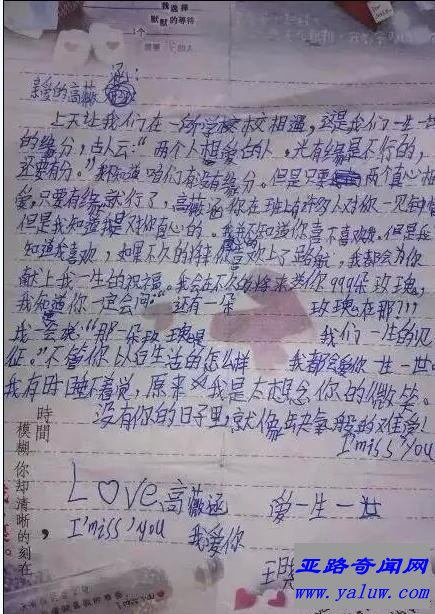 我選擇
默默的等待
一个
需要 的人
亲爱的高薇涵:
上天让我们在一所学校相遇,这是我们一生一世
的缘分,古人云:“两个人相爱的人,光有缘是不行的,
还要有分。”我不知道咱们有没有缘分。但是只要两个真心相
爱,只要有缘就行了,高薇涵你在班上有许多人对你一见钟情
但是我知道我是对你真心的。我不知道你喜不喜欢我。但是我
知道我喜欢,如果不久的将来你喜欢上了别人,我都会为你
献上我一生的祝福。我会在不久的将来送你999朵玫瑰,
我知道你一定会问:“还有一朵 玫瑰在那???
我会说:“那一朵玫瑰是 我们一生的见
征。”不管你以后生活的怎么样 我都会爱你一生一世。
我有时睡不着觉,原来 我是太想念你的微笑。
没有你的日子里,就像缺氧般的难受!
I'miss You
時間,
模糊你却清晰的刻在
Love高薇涵 爱一生一世
I'miss You 我爱你
王
亚路奇闻网
www.yaluw.com